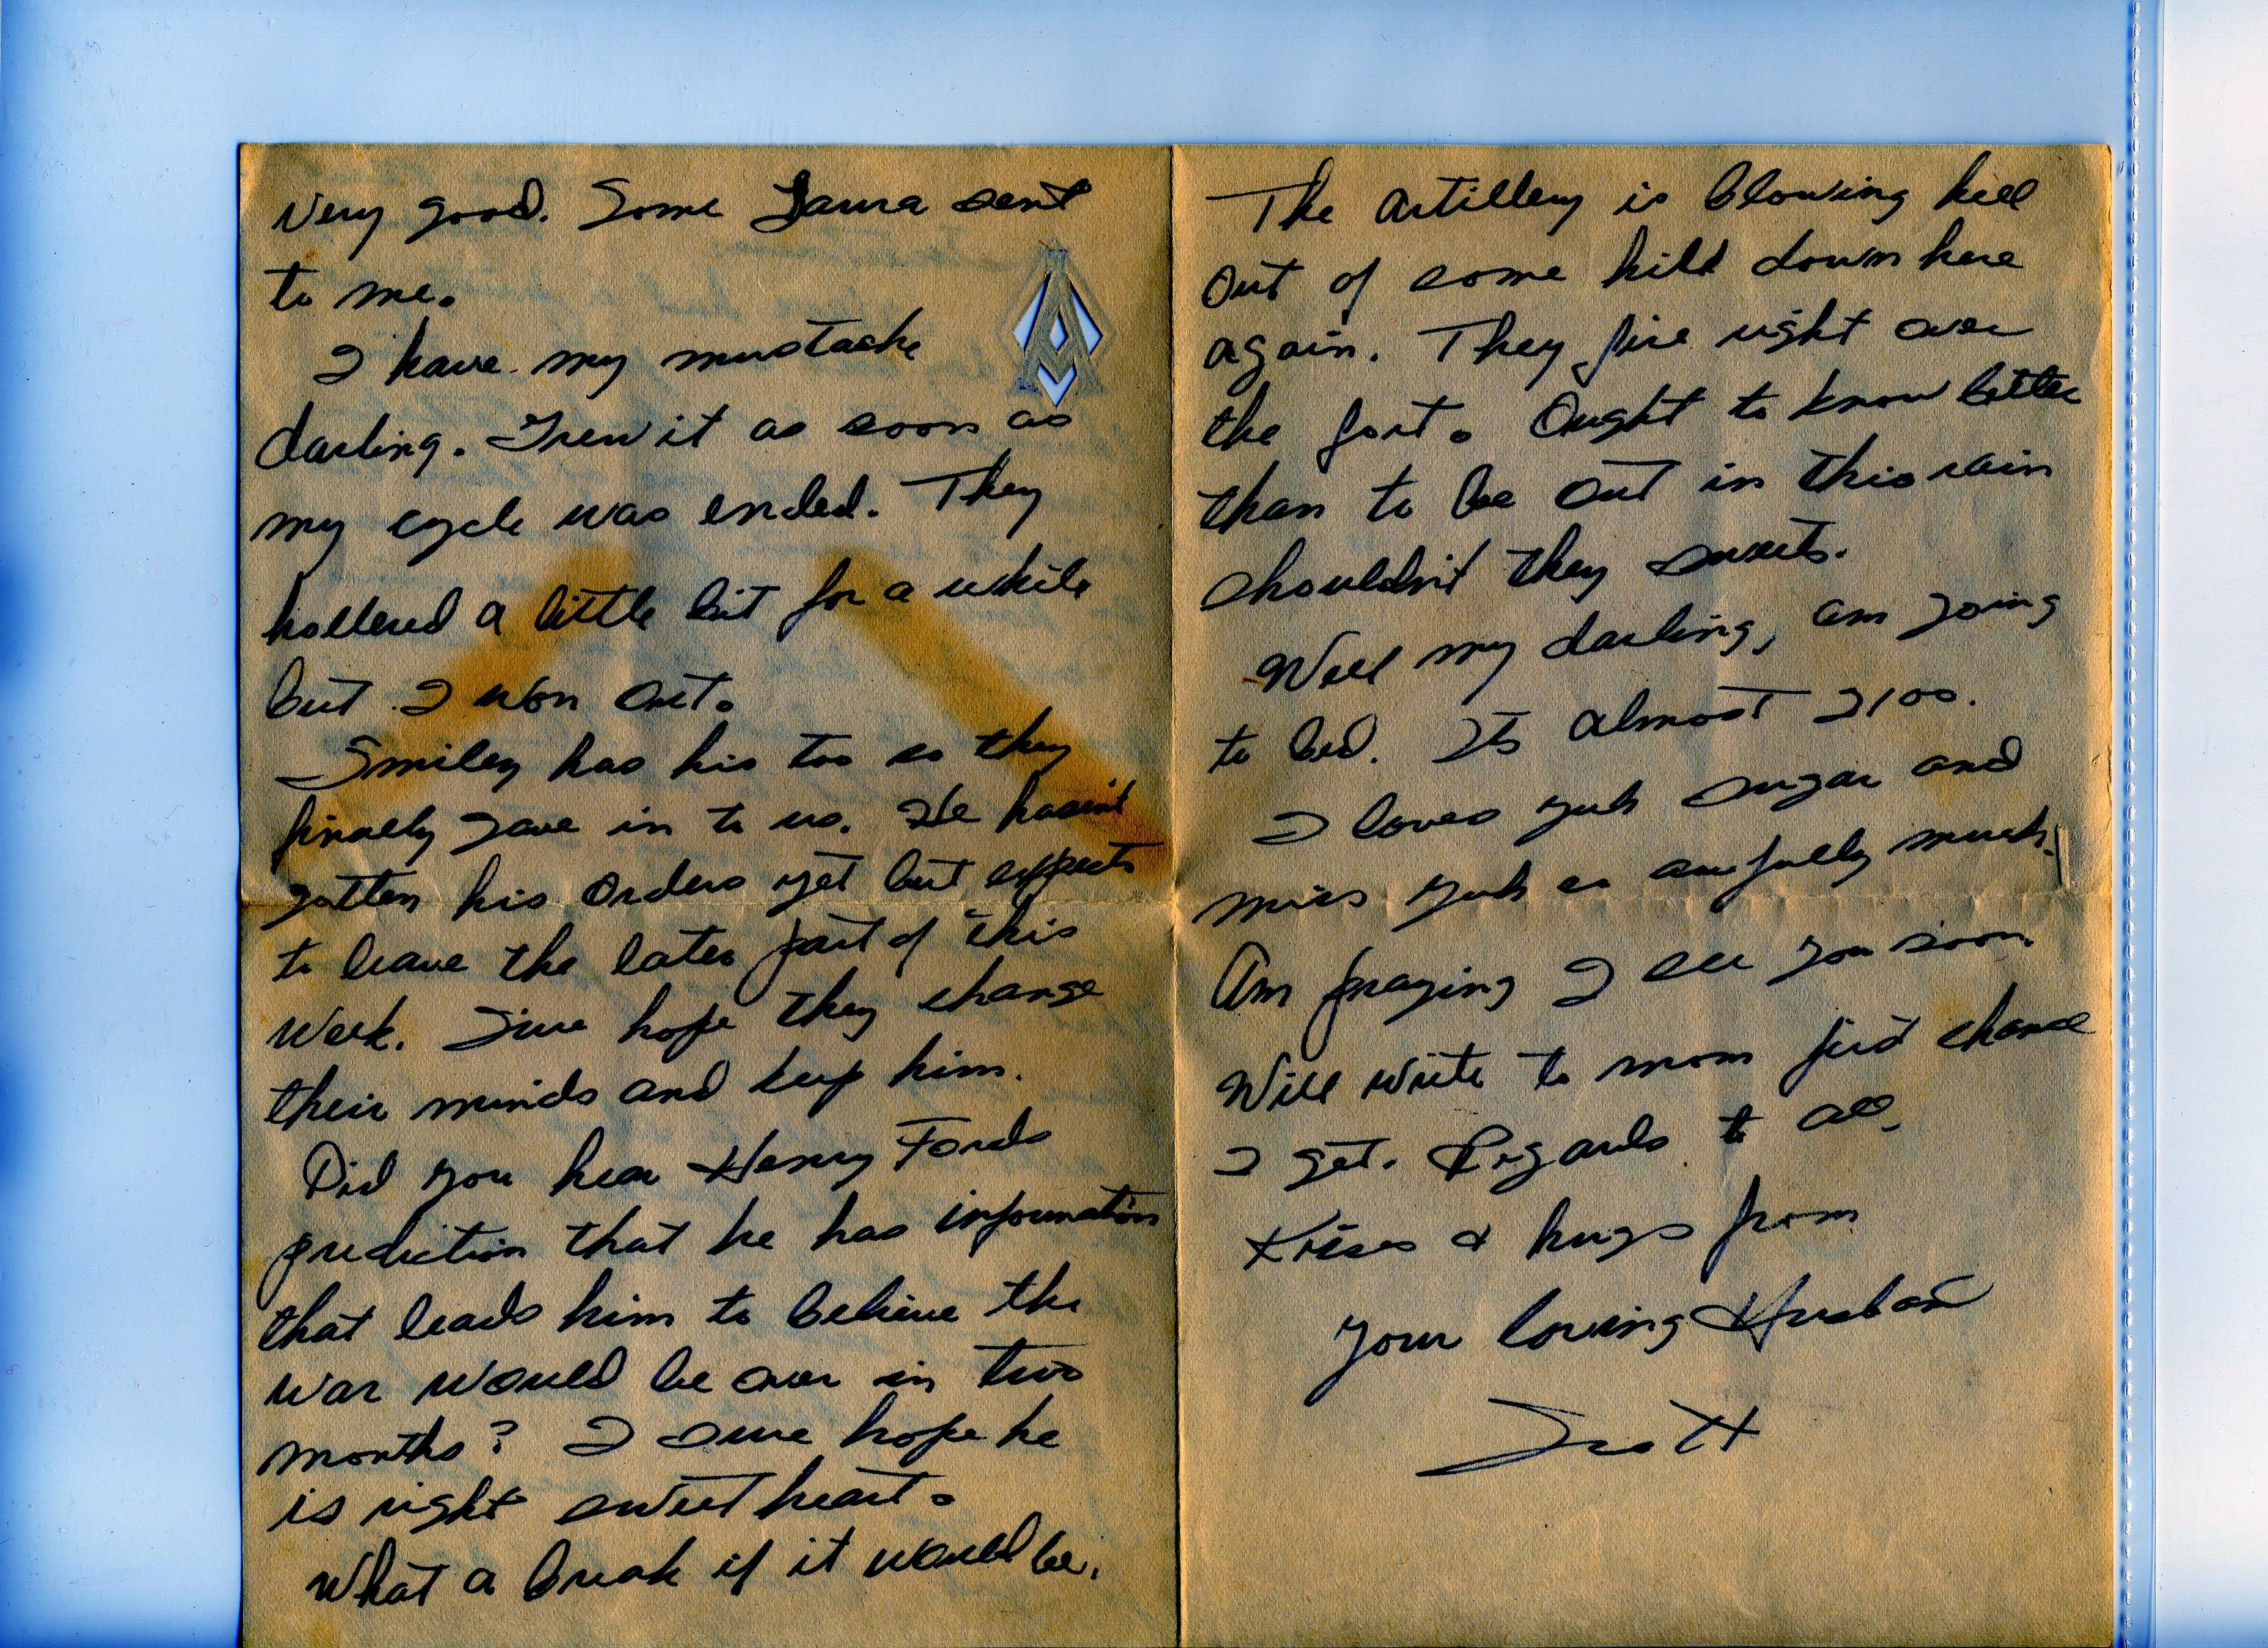 very good. Some Laura sent
to me.
I have my mustache
darling. Grew it as soon as
my cycle was ended. They
hollered a little bit for a while
but I won out.
Smiley has his too so they
finally gave in to us. He hasn't
gotten his orders yet but expects
to leave the later part of this
week. Sure hope they change
their minds and keep him.
Did you hear Henry Fords
prediction that he has information
that leads him to believe the
war would be over in two
months? I sure hope he
is right sweetheart.
What a break if it would be.
The artillery is blowing hell
out of some hill down here
again. They fire right over
the fort. Ought to know better
than to be out in this rain
shouldn't they sweets.
Well my darling, am going
to bed. Its almost 2100.
I loves yuh sugar and
miss yuh so awfully much.
Am praying I see you soon.
Will write to mom first chance
I get. Regards to all.
Kisses & hugs from
Your loving Husband
Scott